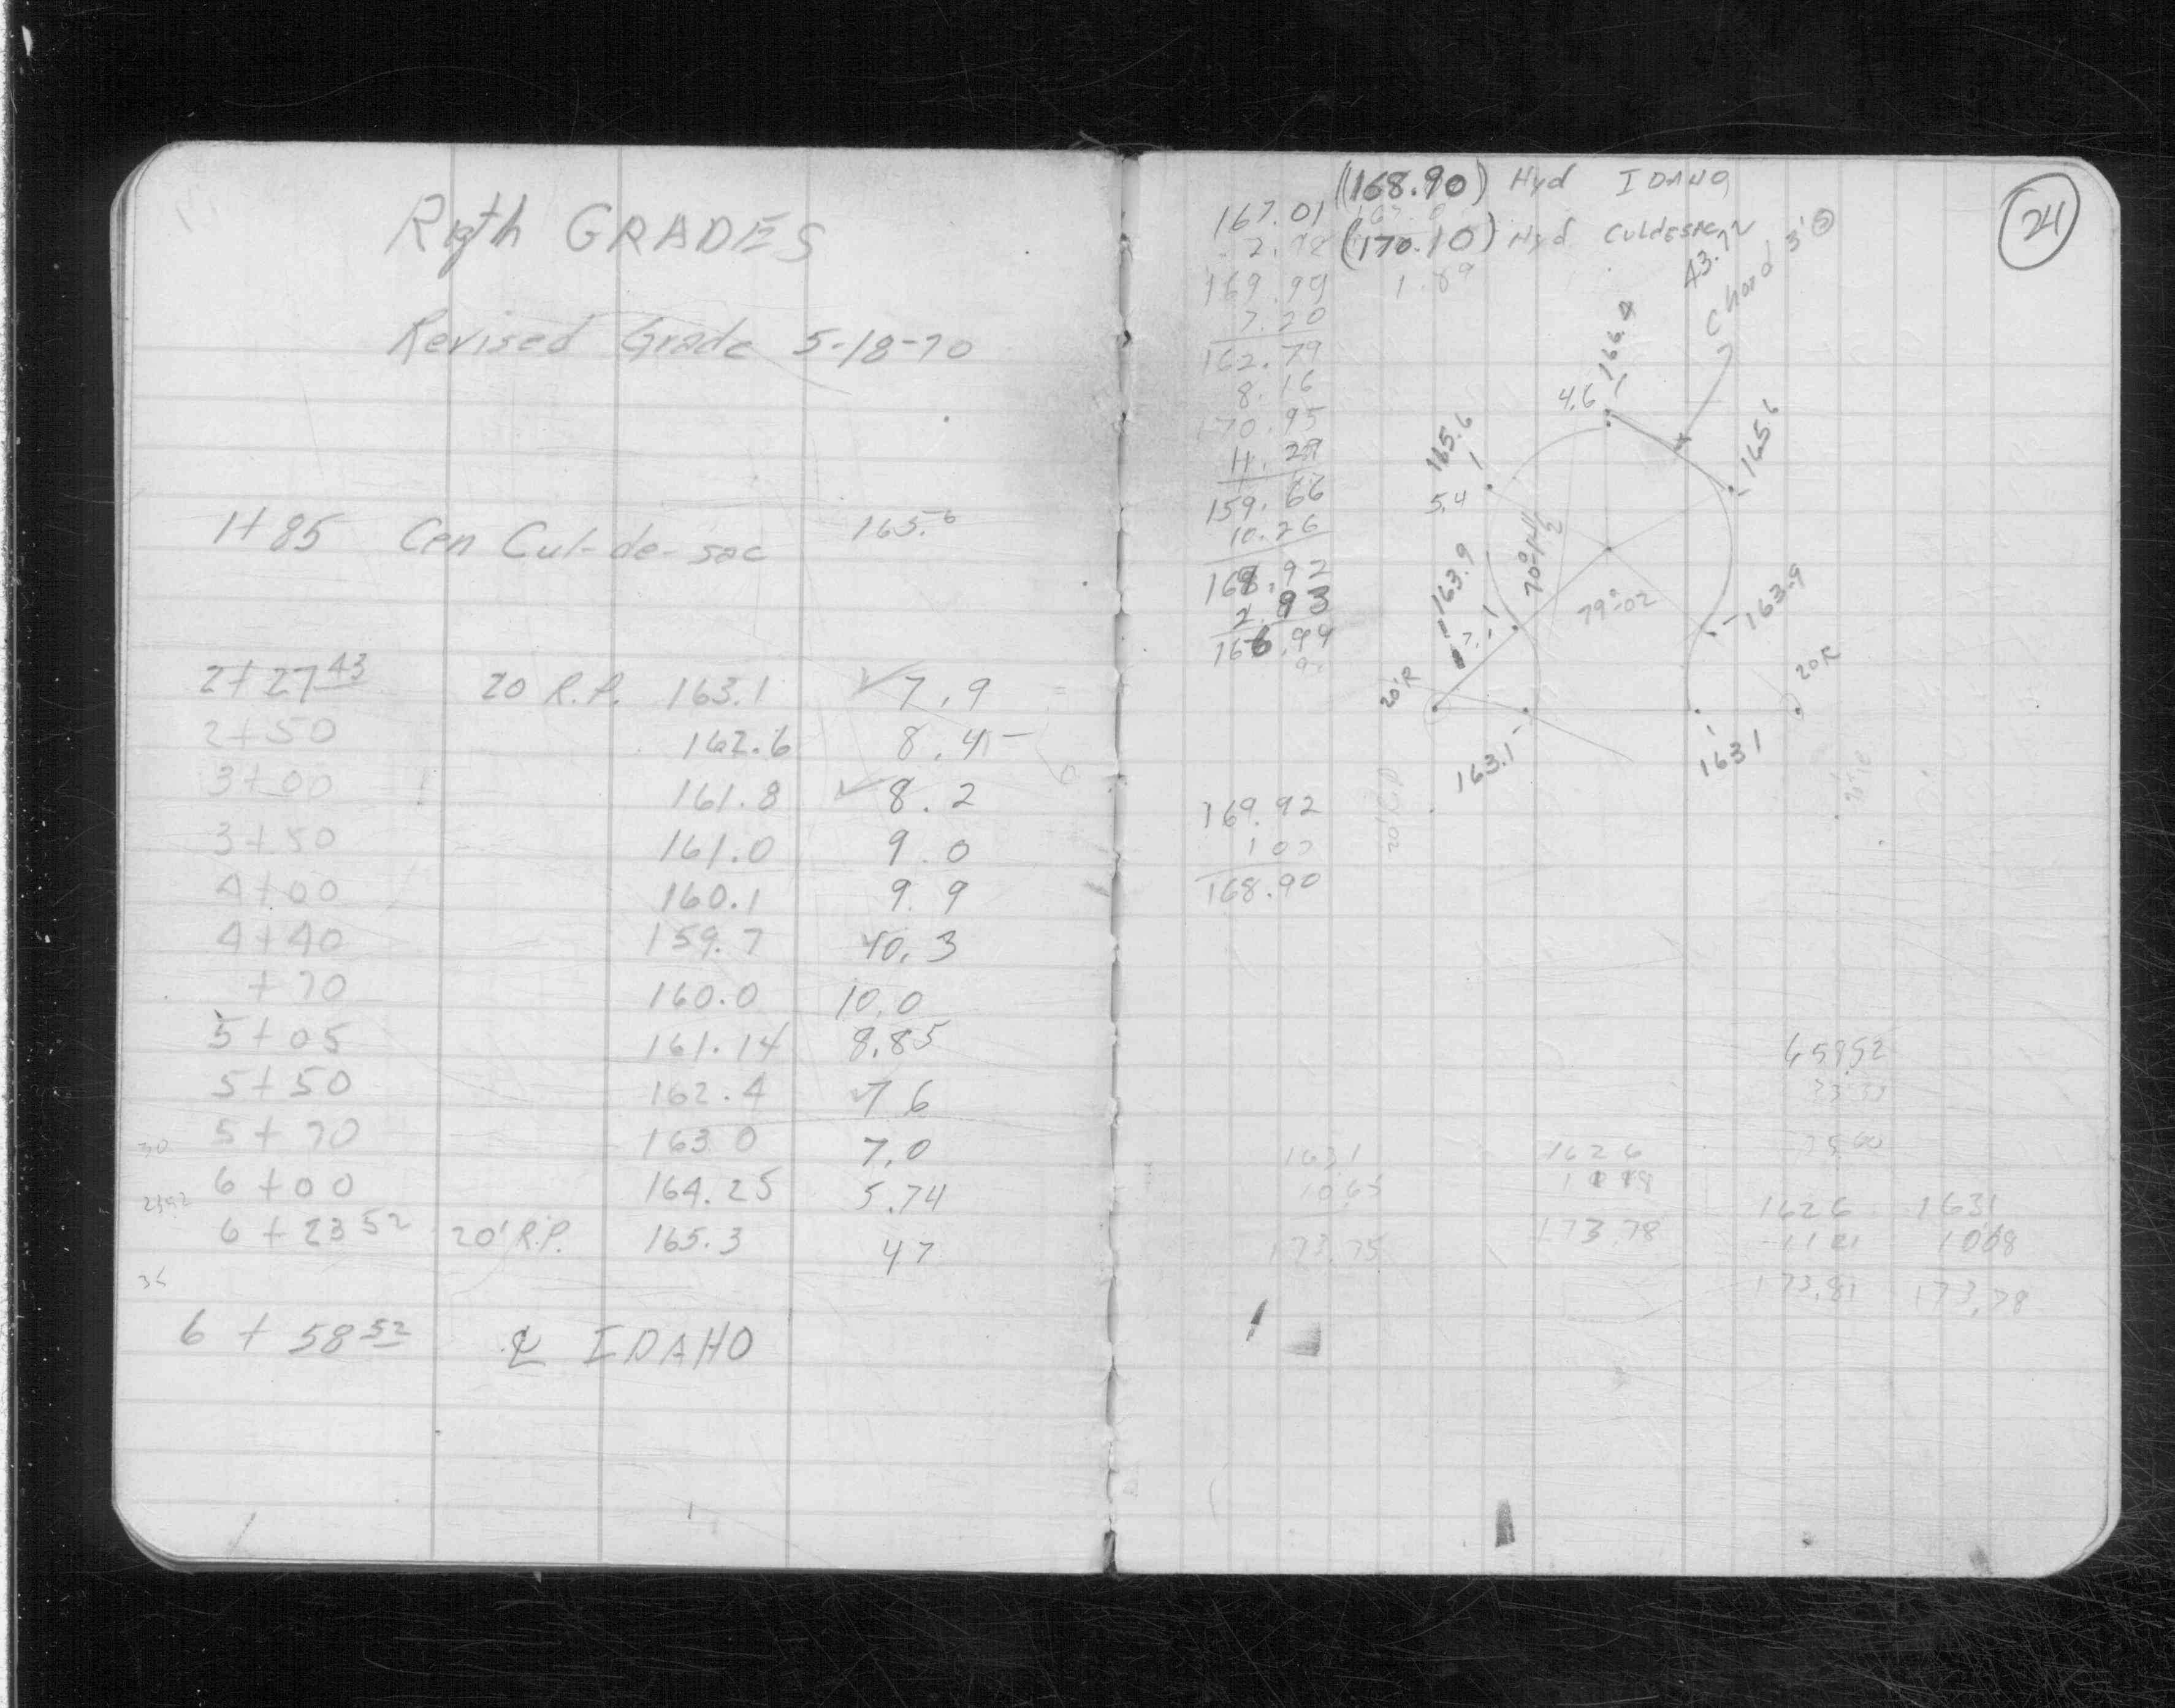 Ruth GRADES
Revised Grade 5-18-70
1+85 Cen Cul-de-sac 165.6
2+27 43 20 R.P. 163.1 ✓ 7.9
2+50 162.6 8.45
3+00 161.8 ✓ 8.2
3+50 161.0 9.0
4+00 160.1 9.9
4+40 159.7 10.3
+70 160.0 10.0
5+05 161.14 8.85
5+50 162.4 ✓ 7 6
30 5+70 163 0 7.0
6+00 164.25 5.74
6+23 52 20' R.P. 165.3 4 7
6+58 52 ℄ IDAHO
24
(168.90) Hyd IDAHO
(170.10) Hyd Culdesac
167.01
169.99 1.89
7.20
162.79
8.16
170.95
11.29
159.66
10.26
169.92
2.93
166.99
43.72
chord 3'
166.4
4.6
165.6
5.4
165.6
163.9
7.1
70°-14½
79°-02
163.9
20'R
20'R
163.1
163 1
20' R.P.
169.92
1 02
168.90
65952
163 1
10 65
173.75
162 6
173.78
162 6
173.81
163 1
1068
173.78